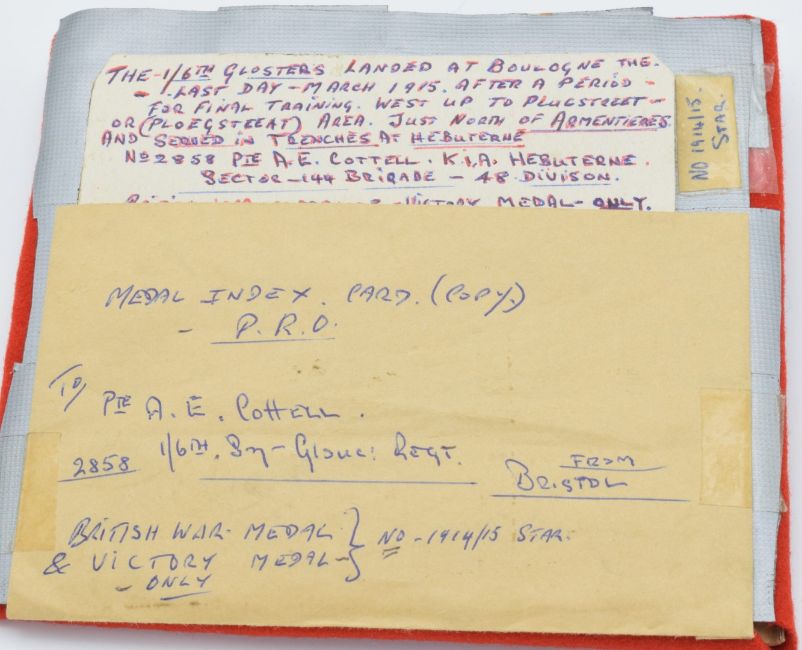 THE - 1/6TH GLOSTERS LANDED AT BOULOGNE THE.
- LAST DAY - MARCH 1915. AFTER A PERIOD -
FOR FINAL TRAINING. WEST UP TO PLUGSTREET -
OR (PLOEGSTEEAT) AREA. JUST NORTH OF ARMENTIERES
AND SERVED IN TRENCHES AT HEBUTERNE
No 2858 PTE A.E. COTTELL. K.I.A. HEBUTERNE.
SECTOR - 144 BRIGADE - 48 DIVISON.
- VICTORY MEDAL - ONLY.
NO 1914/15.
STAR.
MEDAL INDEX. CARD. (COPY.)
- P.R.O.
TO/
PTE A.E. COTTELL.
2858 1/6TH. Bn - Glouc: Regt.
FROM
BRISTOL
BRITISH WAR - MEDAL } NO - 1914/15 STAR.
& VICTORY MEDAL - }
- ONLY